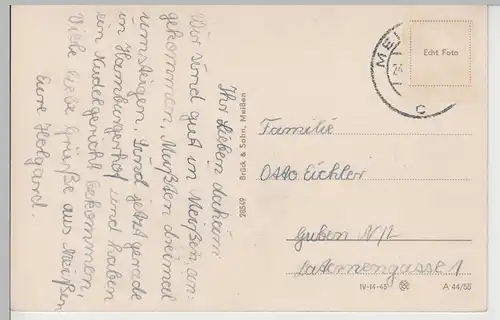 Ihr Lieben daheim
Wir sind gut in Meißen an-
gekommen. Mußten dreimal
umsteigen. Sind jetzt gerade
im Hamburgerhof und haben
ein Nudelgericht bekommen.
Viele liebe Grüße aus Meißen
Eure Helgard.
28549 Brück & Sohn, Meißen
ME
24
C
Echt Foto
Familie
Otto Eichler
Guben N/L
Laternengasse 1
IV-14-45
A 44/55